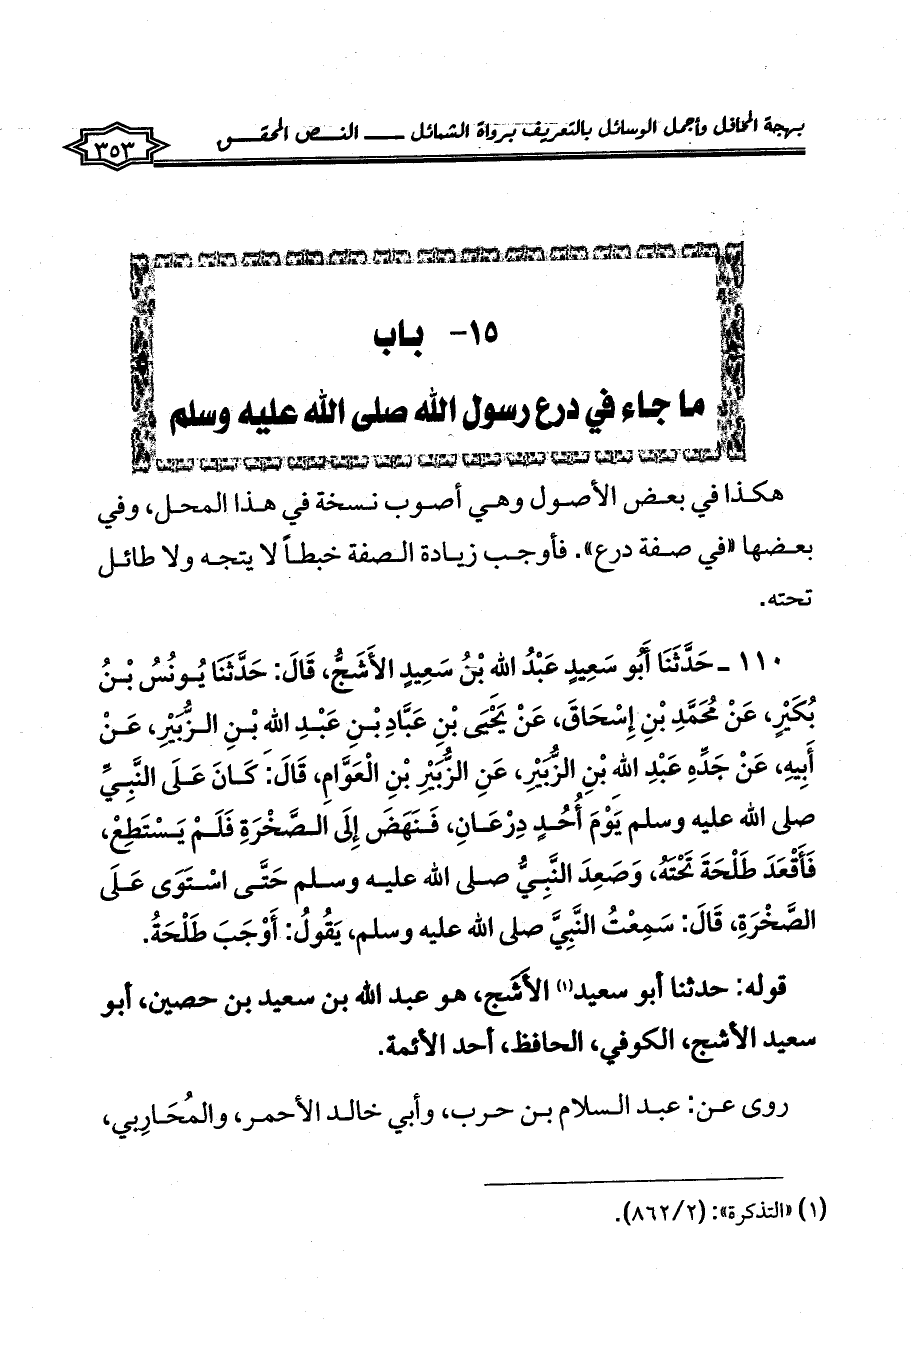 بهجة المحافل وأجمل الوسائل بالتعريف برواة الشمائل ـــ النص المحقق
٣٥٣
١٥- باب
ما جاء في درع رسول الله صلى الله عليه وسلم
هكذا في بعض الأصول وهي أصوب نسخة في هذا المحل، وفي
بعضها «في صفة درع». فأوجب زيادة الصفة خبطاً لا يتجه ولا طائل
تحته.
١١٠ ـ حَدَّثَنَا أَبُو سَعِيدٍ عَبْدُ الله بْنُ سَعِيدٍ الأَشَجُّ، قَالَ: حَدَّثَنَا يُونُسُ بْنُ
بُكَيْرٍ، عَنْ مُحَمَّدِ بْنِ إِسْحَاقَ، عَنْ يَحْيَى بْنِ عَبَّادِ بْنِ عَبْدِ الله بْنِ الزُّبَيْرِ، عَنْ
أَبِيهِ، عَنْ جَدِّهِ عَبْدِ الله بْنِ الزُّبَيْرِ، عَنِ الزُّبَيْرِ بْنِ الْعَوَّامِ، قَالَ: كَانَ عَلَى النَّبِيِّ
صلى الله عليه وسلم يَوْمَ أُحُدٍ دِرْعَانِ، فَنَهَضَ إِلَى الصَّخْرَةِ فَلَمْ يَسْتَطِعْ،
فَأَقْعَدَ طَلْحَةَ تَحْتَهُ، وَصَعِدَ النَّبِيُّ صلى الله عليه وسلم حَتَّى اسْتَوَى عَلَى
الصَّخْرَةِ، قَالَ: سَمِعْتُ النَّبِيَّ صلى الله عليه وسلم، يَقُولُ: أَوْجَبَ طَلْحَةُ.
قوله: حدثنا أبو سعيد(١) الأَشَج، هو عبد الله بن سعيد بن حصين، أبو
سعيد الأشج، الكوفي، الحافظ، أحد الأئمة.
روى عن: عبد السلام بن حرب، وأبي خالد الأحمر، والمُحَارِبي،
(١) «التذكرة»: (٨٦٢/٢).